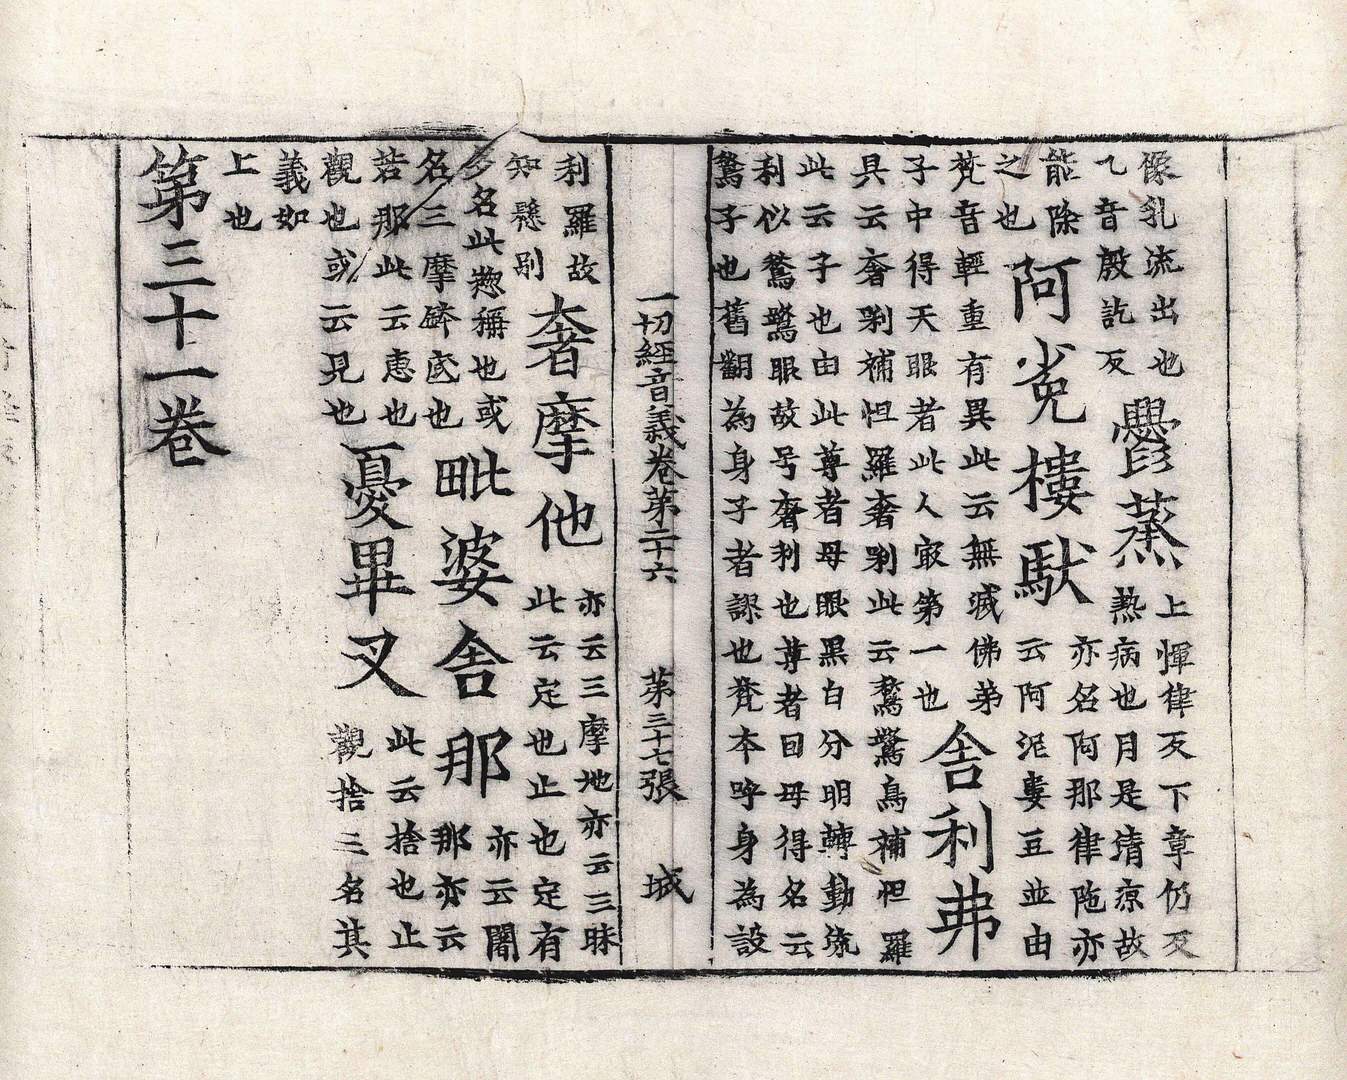 像乳流出也
乙音殷訖反
鬱蒸
上惲律反下章仍反
熱病也月是清涼故
能除
之也
阿㝹樓馱
亦名阿那律陁亦
云阿泥婁豆並由
梵音輕重有異此云無滅佛弟
子中得天眼者此人㝡第一也
舍利弗
具云奢唎補怛羅奢唎此云鶖鷺鳥補怛羅
此云子也由此尊者母眼黑白分明轉動流
利似鶖鷺眼故号奢利也尊者因母得名云
鶖子也舊翻為身子者謬也梵本呼身為設
一切經音義卷第二十六　第三十七張　城
利羅故
知懸別
奢摩他
亦云三摩地亦云三昧
此云定也止也定有
多名此惣稱也或
名三摩鉢底也
毗婆舍那
亦云闍
那亦云
若那此云惠也
觀也或云見也
憂畢叉
此云捨也止
觀捨二名其
義如
上也
第三十一卷